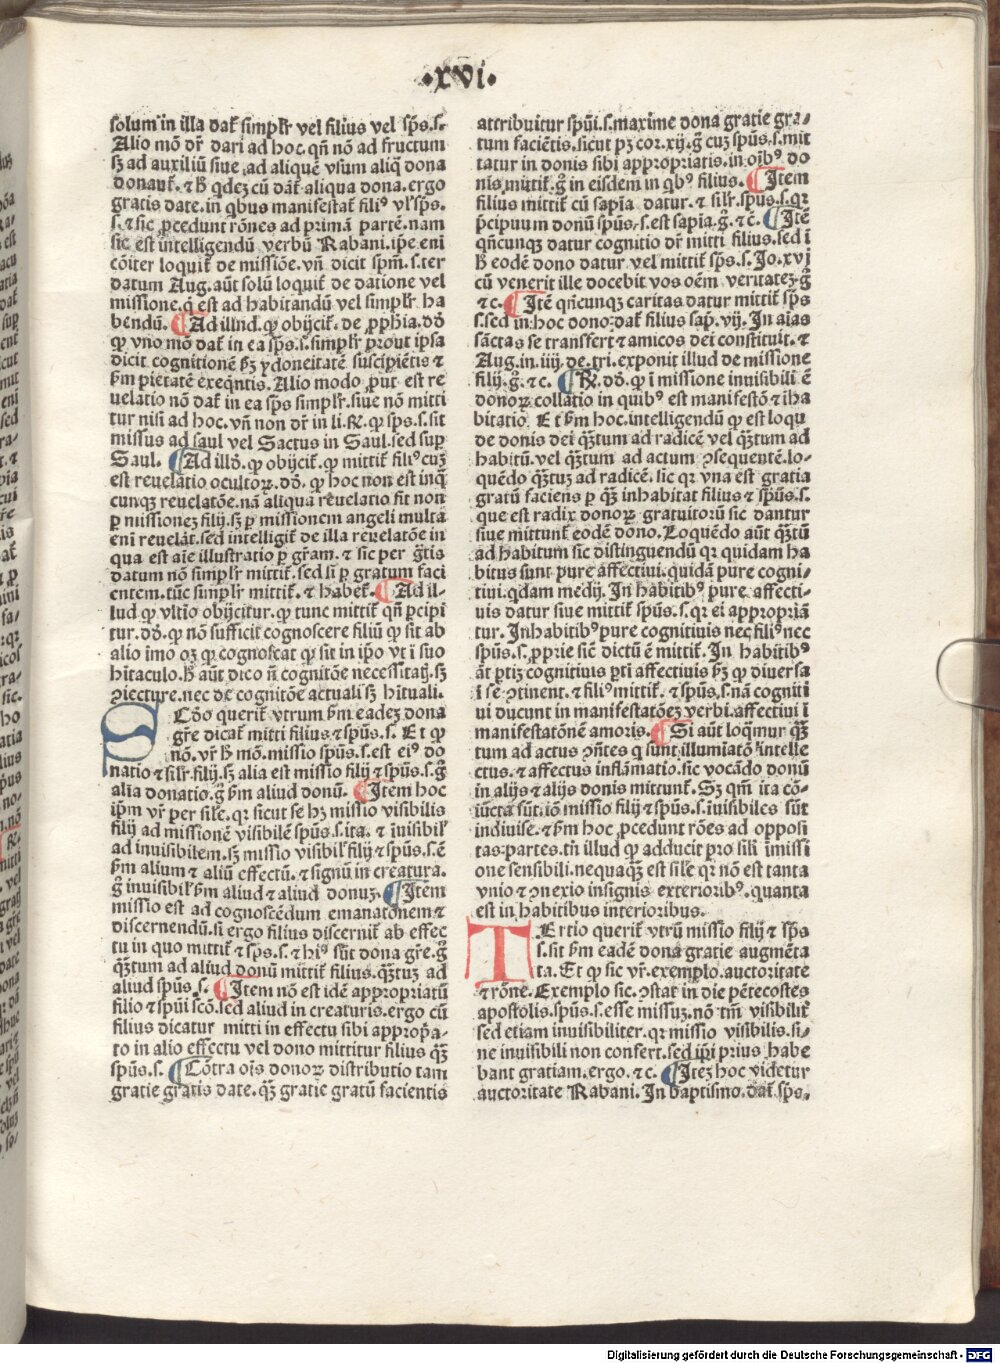 ·xvi·
solum in illa dat̄ simpl̄r vel filius vel sp̄s.s.
Alio mō dr̄ dari ad hoc. qn̄ nō ad fructum
sꝫ ad auxiliū siue ad aliquē vsum aliq̄ dona
donant̄. ⁊ h̄ qdeꝫ cū dāt̄ aliqua dona. ergo
gratis date. in qbus manifestat̄ filiꝰ vl̄ sp̄s.
s. ⁊ sic ꝓcedunt rōnes ad primā partē. nam
sic est intelligendū verbū Rabani. ip̄e eni
cōiter loquit̄ de missiōe. vn̄ dicit spm̄. s. ter
datum Aug. aūt solū loquit̄ de datione vel
missione. q̄ est ad habitandū vel simpl̄r ha
bendū. ¶ Ad illud. ꝙ obijcit̄. de ꝓphīa. dō
ꝙ vno mō dat̄ in ea sp̄s. s. simpl̄r prout ipsa
dicit cognitionē ẜm ydoneitatē suscipiētis ⁊
ẜm pietatē exeqn̄tis. Alio modo ꝓut est re
uelatio nō dat̄ in ea sp̄s simpl̄r. siue nō mitti
tur nisi ad hoc. vn̄ non dr̄ in li. R̄. ꝙ sp̄s. s. sit
missus ad saul vel Sāctus in Saul. sed sup
Saul. ¶ Ad illō. ꝙ obijcit̄. ꝙ mittit̄ filiꝰ cuꝫ
est reuelatio ocultoꝝ. dō. ꝙ hoc non est inq̄
cunqꝫ reuelatōe. nā aliqua reuelatio fit non
ꝑ missioneꝫ filij. sꝫ ꝑ missionem angeli multa
enī reuelāt̄. sed intelligit̄ de illa reuelatōe in
qua est aīe illustratio ꝑ gr̄am. ⁊ sic per gr̄tis
datum nō simpl̄r mittit̄. sed si ꝑ gratum faci
entem. tūc simpl̄r mittit̄. ⁊ habet̄. ¶ Ad il-
lud ꝙ vltīo obijcitur. ꝙ tunc mittit̄ qn̄ ꝑcipi
tur. dō. ꝙ nō sufficit cognoscere filiū ꝙ sit ab
alio īmo oꝫ ꝙ cognoscat ꝙ sit in ip̄o vt ī suo
hītaculo. h̄ aūt dico n̄ cognitōe necessitatꝭ. sꝫ
ꝯiecture. nec de cognitōe actuali sꝫ hītuali.
SCd̄o querit̄ vtrum ẜm eadeꝫ dona
gr̄e dicat̄ mitti filius ⁊ sp̄us. s. Et ꝙ
nō. vr̄ h̄ mō. missio sp̄us. s. est eiꝰ do
natio ⁊ sil̄r filij. sꝫ alia est missio filij ⁊ sp̄us. s. ḡ
alia donatio. ḡ ẜm aliud donū. ¶ Item hoc
ip̄m vr̄ per sile. qꝛ sicut se hꝫ missio visibilis
filij ad missionē visibilē sp̄us. s. ita. ⁊ īuisibil̄
ad inuisibilem. sꝫ missio visibil̄ filij ⁊ sp̄us. s. ē
ẜm alium ⁊ aliū effectū. ⁊ signū in creatura.
ḡ inuisibil̄ ẜm aliud ⁊ aliud donuꝫ. ¶ Item
missio est ad cognoscēdum emanatōnem ⁊
discernendū. si ergo filius discernit̄ ab effec
tu in quo mittit̄ ⁊ sp̄s. s. ⁊ hiꝰ sūt dona gr̄e. ḡ
qꝫtum ad aliud donū mittit̄ filius. qꝫtuꝫ ad
aliud sp̄us. s. ¶ Item nō est idē appropriatū
filio ⁊ sp̄ui scō. sed aliud in creaturis. ergo cū
filius dicatur mitti in effectu sibi appropa-
to in alio effectu vel dono mittitur filius qꝫ
sp̄us. s. ¶ Cōtra oīs donoꝝ distributio tam
gratie gratis date. qꝫ gratie gratū facientis
attribuitur sp̄ui. s. maxime dona gratie gra-
tum faciētis. sicut pꝫ cor. xij. ḡ cuꝫ sp̄us. s. mit
tatur in donis sibi appropriatis. in oībꝰ do
nis mittit̄. ḡ in eisdem in qbꝰ filius. ¶ Item
filius mittit̄ cū sapīa datur. ⁊ sil̄r. sp̄us. s. qꝛ
p̄cipuum donū sp̄us. s. est sapīa. ḡ. ⁊ c̄. ¶ Itē
qn̄cunqꝫ datur cognitio dr̄ mitti filius. sed ī
h̄ eodē dono datur vel mittit̄ sp̄s. s. Jo. xvj
cū venerit ille docebit vos oēm veritateꝫ. ḡ
⁊ c̄. ¶ Itē qn̄cunqꝫ caritas datur mittit̄ sp̄s
s. sed in hoc dono. dat̄ filius sap̄. vij. In aīas
sāctas se transfert ⁊ amicos dei constituit. ⁊
Aug. in. iiij. de. tri. exponit illud de missione
filij. ḡ. ⁊ c̄. ¶ R̄. dō. ꝙ ī missione inuisibili ē
donoꝝ collatio in quibꝰ est manifestō ⁊ iha
bitatio. Et ẜm hoc. intelligendū ꝙ est loqu
de donis dei qꝫtum ad radicē vel qꝫtum ad
habitū. vel qꝫtum ad actum ꝯsequentē. lo-
quēdo qꝫtuꝫ ad radicē. sic qꝛ vna est gratia
gratū faciens ꝑ qꝫ inhabitat filius ⁊ sp̄us. s.
que est radix donoꝝ gratuitorū sic dantur
siue mittunt̄ eodē dono. Loquēdo aūt qꝫtū
ad habitum sic distinguendū qꝛ quidam ha
bitus sunt pure affectiui. quidā pure cogni-
tiui. qdam medij. In habitibꝰ pure affecti-
uis datur siue mittit̄ sp̄us. s. qꝛ ei appropriā
tur. In habitibꝰ pure cognitiuis nec filiꝰ nec
sp̄us. s. ꝓprie sic̄ dictū ē mittit̄. In habitibꝰ
āt ꝑtiꝫ cognitiuis ꝑtī affectiuis ẜm ꝙ diuersa
ī se ꝯtinent. ⁊ filiꝰ mittit̄. ⁊ sp̄us. s. nā cogniti
ui ducunt in manifestatōeꝫ verbi. affectiui ī
manifestatōnē amoris. ¶ Si aūt loqmur qꝫ
tum ad actus ꝯn̄tes q̄ sunt illumiatō intelle
ctus. ⁊ affectus inflāmatio. sic vocādo donū
in alijs ⁊ alijs donis mittunt̄. Sꝫ qm̄ ita cō-
iūcta sūt. iō missio filij ⁊ sp̄us. s. īuisibiles sūt
indiuise. ⁊ ẜm hoc ꝓcedunt rōes ad opposi
tas partes. tn̄ illud ꝙ adducit pro sili īmissi
one sensibili. nequaqꝫ est sile qꝛ nō est tanta
vnio ⁊ ꝯnexio insignis exterioribꝰ. quanta
est in habitibus interioribus.
TErtio querit̄ vtrū missio filij ⁊ sp̄s
s. sit ẜm eadē dona gratie augmēta
ta. Et ꝙ sic vr̄. exemplo. auctoritate
⁊ rōne. Exemplo sic. ꝯstat in die pētecostes
apostolis. sp̄us. s. esse missuꝫ. nō tm̄ visibilit̄
sed etiam inuisibiliter. qꝛ missio visibilis. si-
ne inuisibili non confert. sed ip̄i prius habe
bant gratiam. ergo. ⁊ c̄. ¶ Iteꝫ hoc videtur
auctoritate Rabani. In baptismo. dat̄ sp̄s.
Digitalisierung gefördert durch die Deutsche Forschungsgemeinschaft - DFG